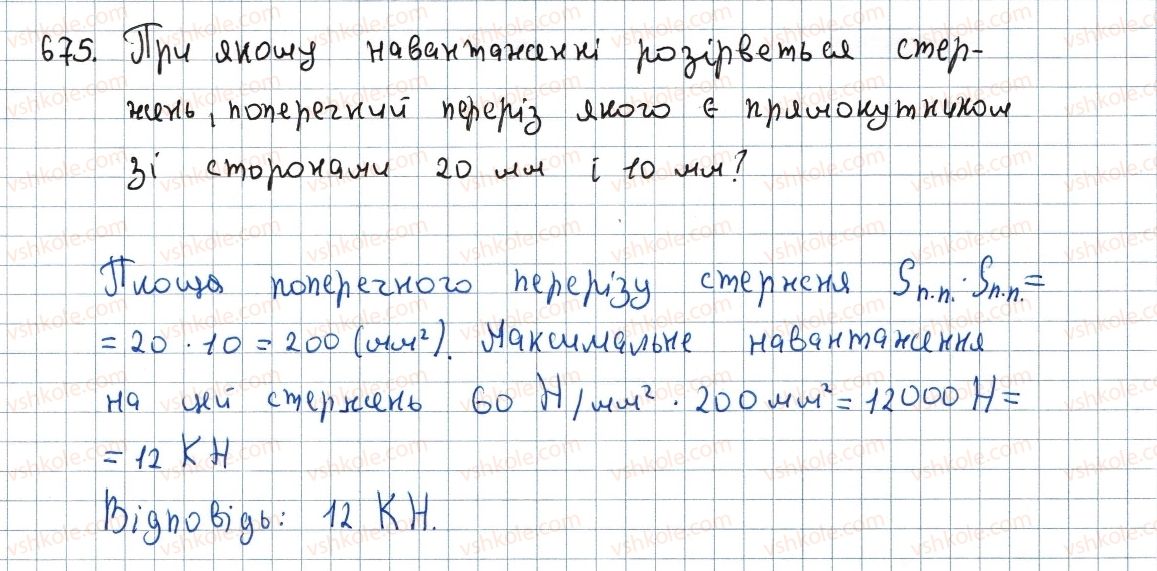 675. При якому навантаженні розірветься стер-
жень, поперечний переріз якого є прямокутником
зі сторонами 20 мм і 10 мм?
Площа поперечного перерізу стержня Sп.п. Sп.п. =
= 20 · 10 = 200 (мм²). Максимальне навантаження
на цей стержень 60 Н/мм² · 200 мм² = 12000 Н =
= 12 КН
Відповідь: 12 КН.